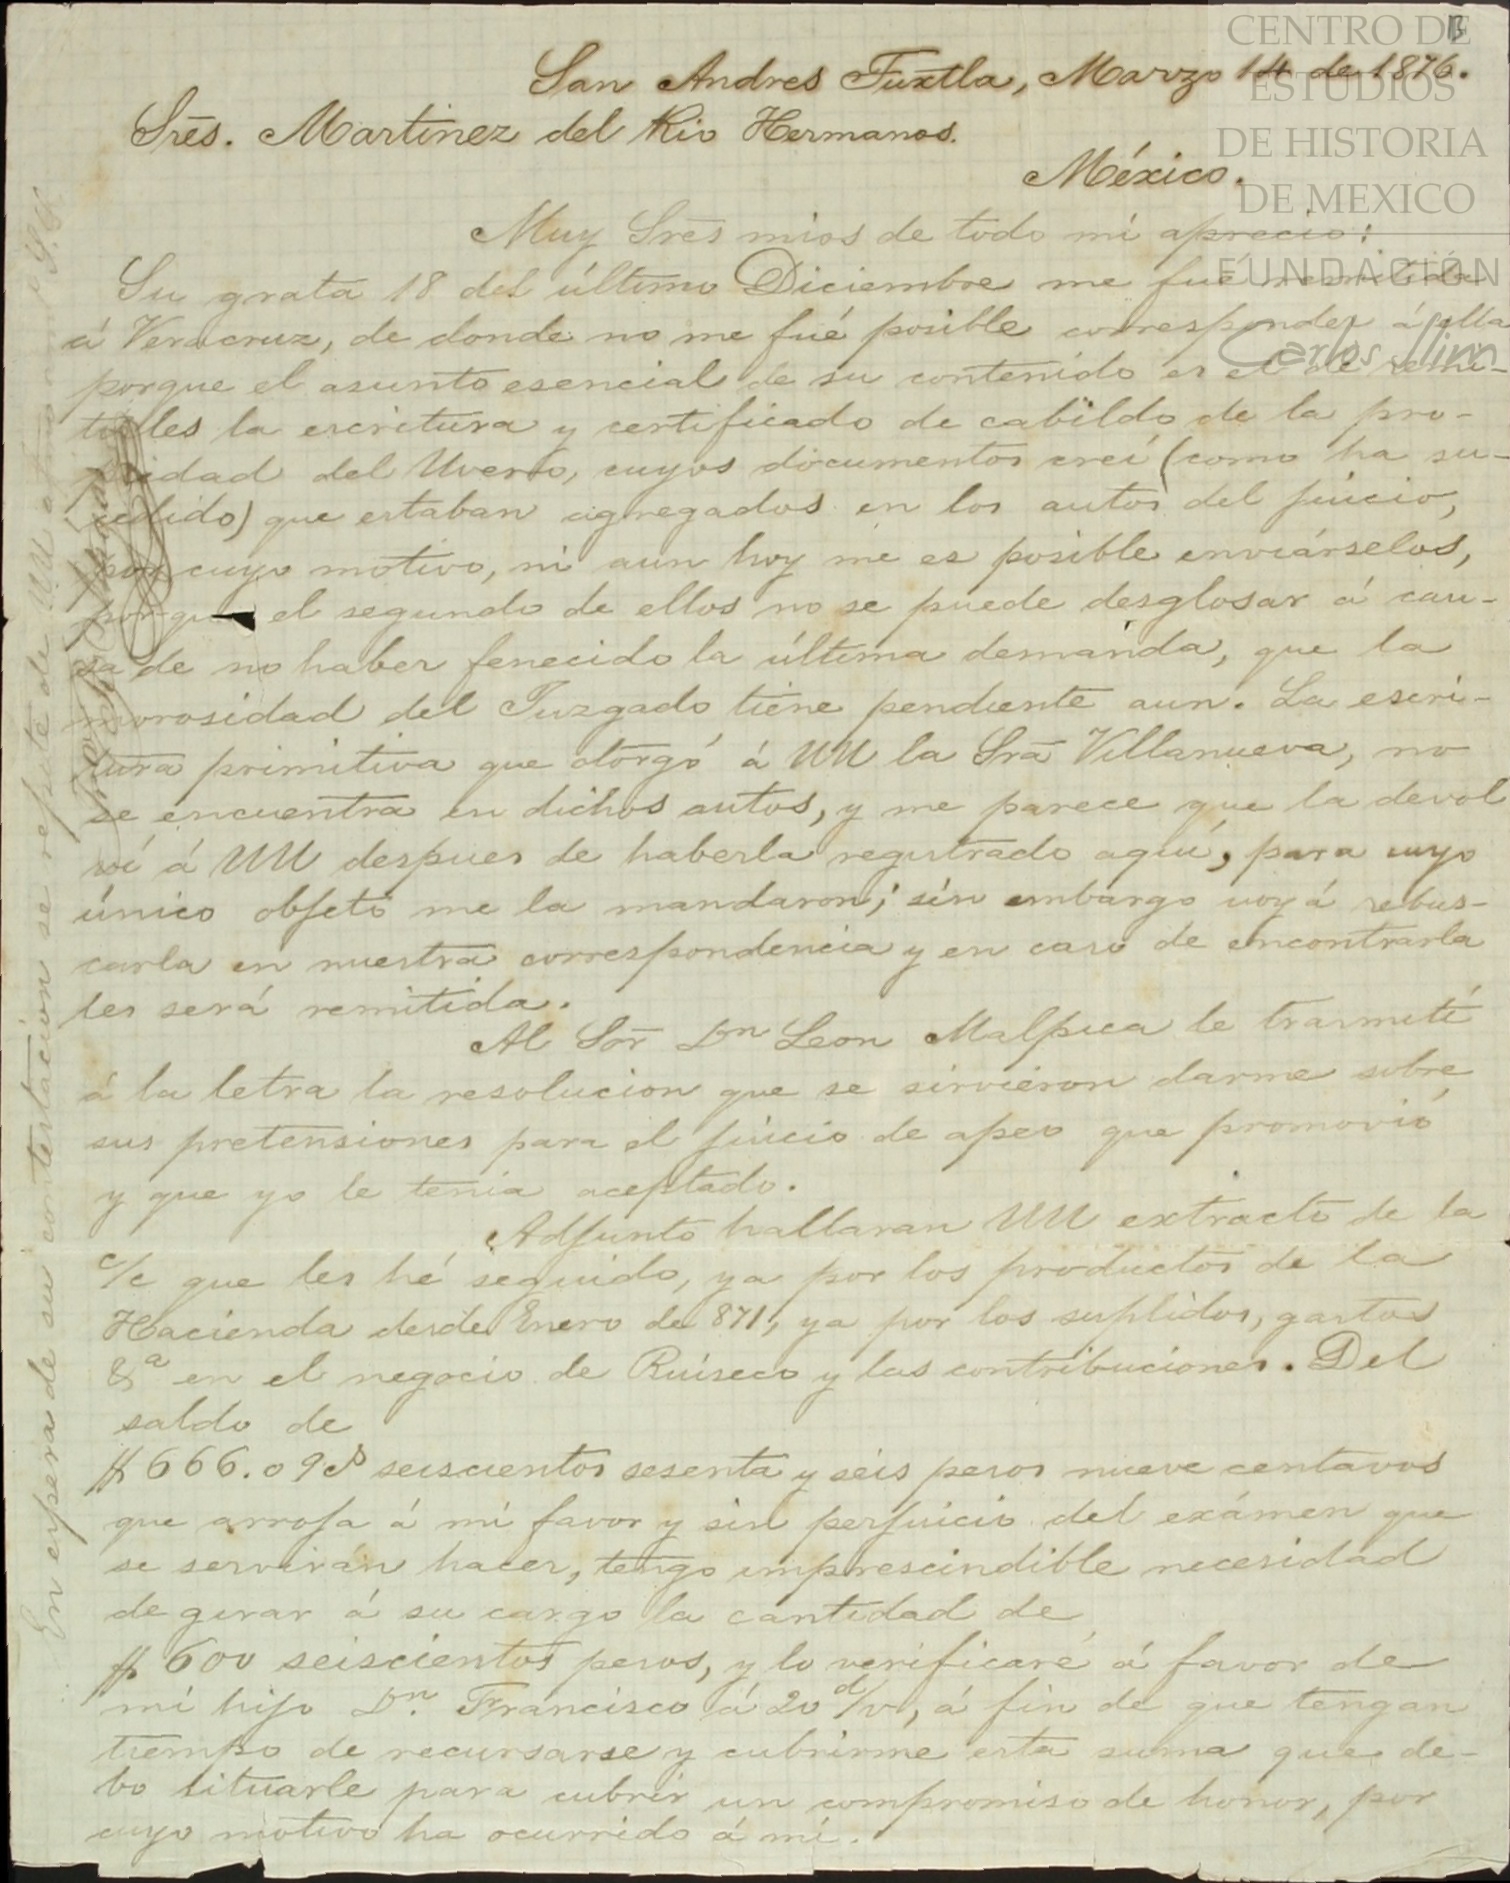 B
CENTRO DE
ESTUDIOS
DE HISTORIA
DE MEXICO
FUNDACIÓN
Carlos Slim
San Andres Tuxtla, Marzo 14 de 1876.
Sres. Martinez del Rio Hermanos.
México.
Muy Sres mios de todo mi aprecio:
Su grata 18 del último Diciembre me fué remitida
á Veracruz, de donde no me fué posible corresponder á ella
porque el asunto esencial de su contenido es el de remi-
tirles la escritura y certificado de cabildo de la pro-
piedad del Uvero, cuyos documentos creí (como ha su-
cedido) que estaban agregados en los autos del juicio,
por cuyo motivo, ni aun hoy me es posible enviárselos,
porque el segundo de ellos no se puede desglosar á cau-
sa de no haber fenecido la última demanda, que la
morosidad del Juzgado tiene pendiente aun. La escri-
tura primitiva que otorgó á UU la Sra Villanueva, no
se encuentra en dichos autos, y me parece que la devol
ví á UU despues de haberla registrado aquí, para cuyo
único objeto me la mandaron; sin embargo voy á rebus-
carla en nuestra correspondencia y en caso de encontrarla
les será remitida.
Al Sor Dn Leon Malpica le trasmití
á la letra la resolucion que se sirvieron darme sobre
sus pretensiones para el juicio de apeo que promovió
y que yo le tenia aceptado.
Adjunto hallaran UU extracto de la
c/c que les hé seguido, ya por los productos de la
Hacienda desde Enero de 871, ya por los suplidos, gastos
&a en el negocio de Ruiseco y las contribuciones. Del
saldo de
$ 666.09 cs seiscientos sesenta y seis pesos nueve centavos
que arroja á mi favor y sin perjuicio del exámen que
se servirán hacer, tengo imprescindible necesidad
de girar á su cargo la cantidad de
$ 600 seiscientos pesos, y lo verificaré á favor de
mi hijo Dn. Francisco á 20 d/v, á fin de que tengan
tiempo de recursarse y cubrirme esta suma que de-
bo situarle para cubrir un compromiso de honor, por
cuyo motivo ha ocurrido á mí.
En espera de su contestacion se repite de UU atmo